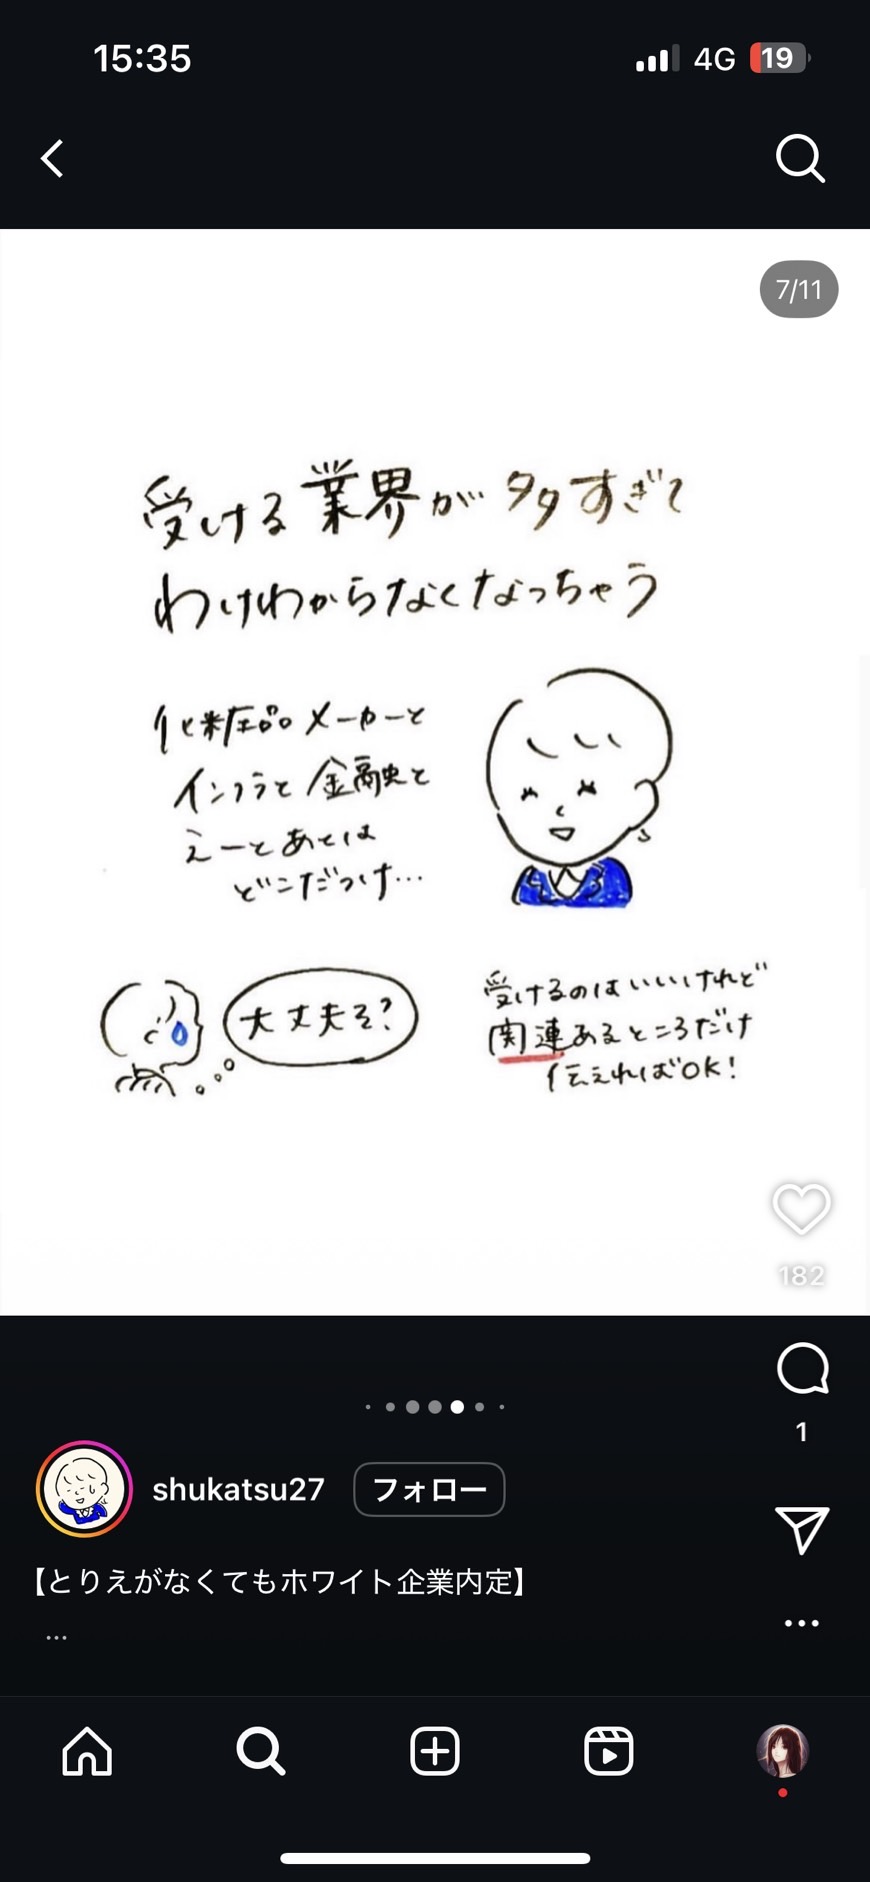 15:35
4G
19
7/11
受ける業界が多すぎて
わけわからなくなっちゃう
化粧品メーカーと
インフラと金融と
えーとあとは
どこだっけ…
大丈夫そ?
受けるのはいいけれど
関連あるところだけ
伝えればOK!
182
1
shukatsu27
フォロー
【とりえがなくてもホワイト企業内定】
...